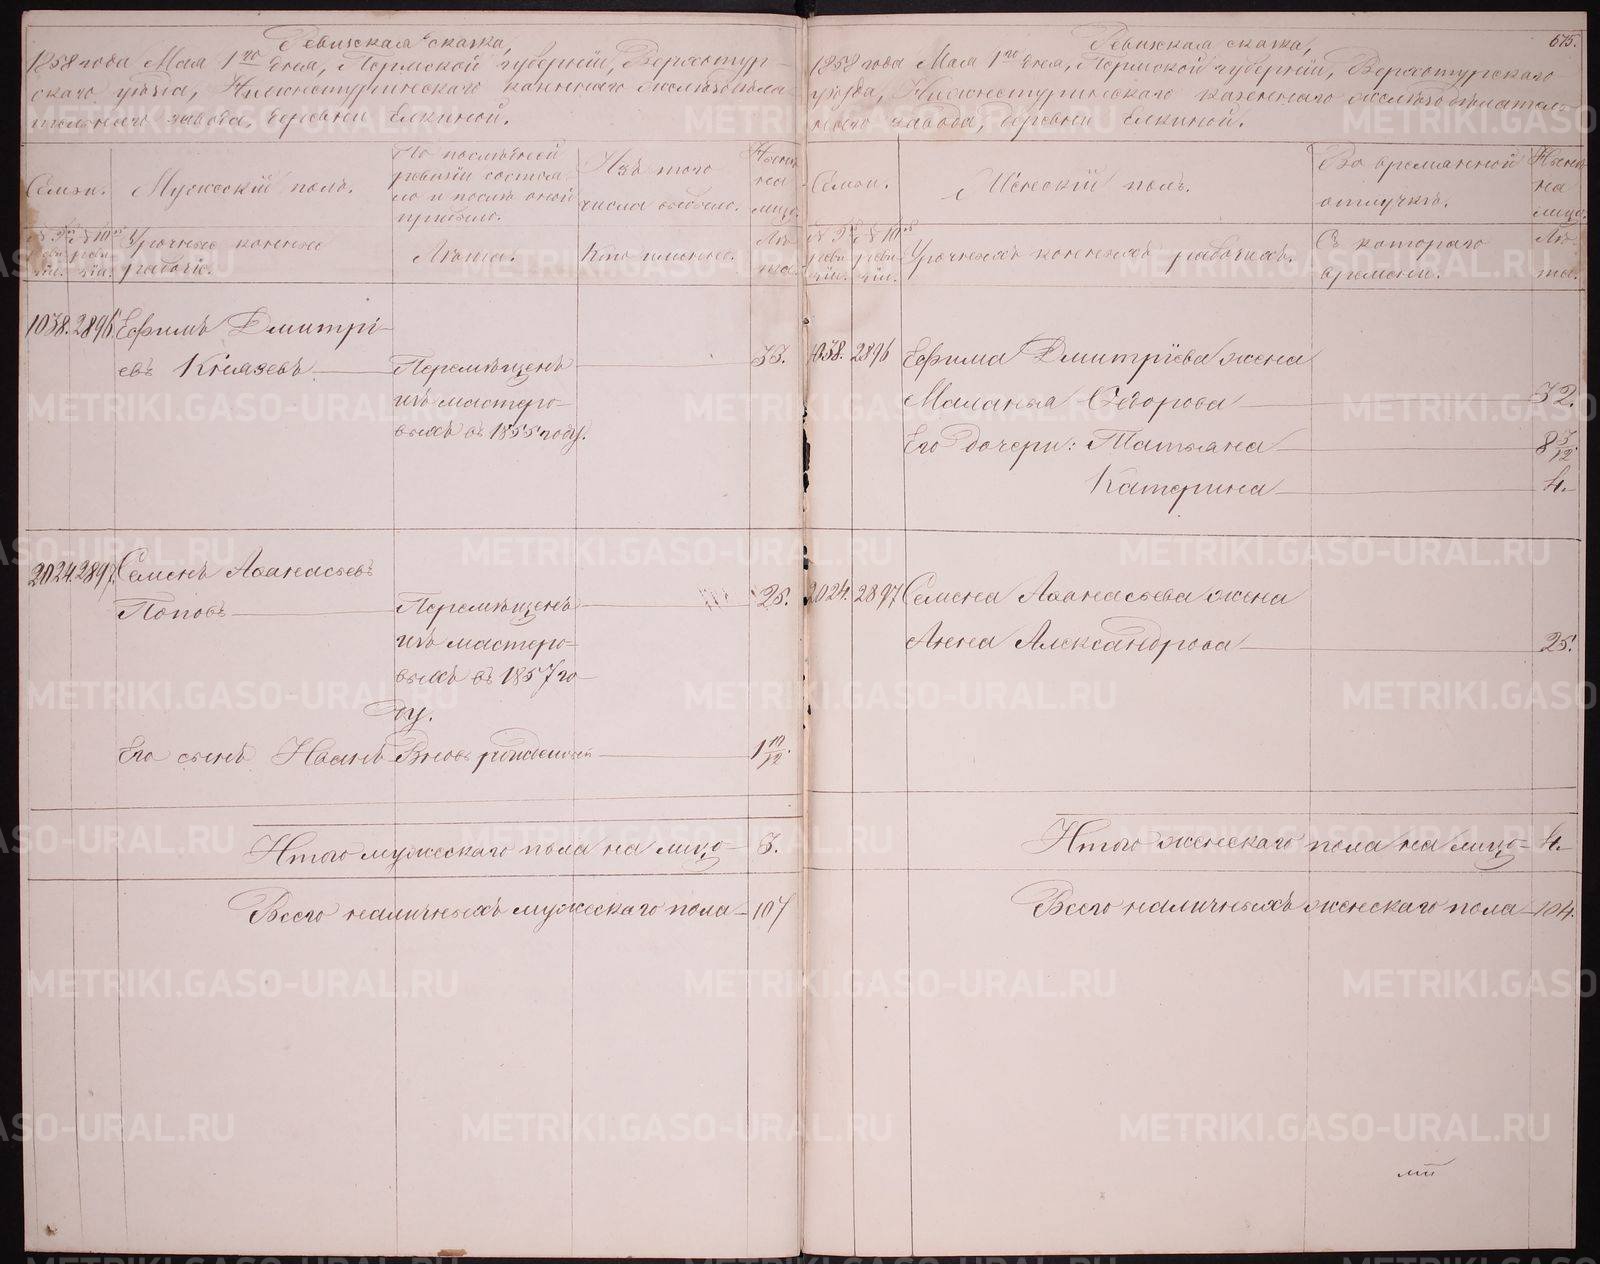 Ревизская сказка,
1858 года Мая 1го дня, Пермской губернiи, Верхотур-
скаго уѣзда, Нижнетуринскаго казеннаго желѣзодѣла-
тельнаго завода, деревни Елкиной.
Семьи.
Мужескiй полъ.
По послѣдней
ревизiи состоя-
ло и послѣ оной
прибыло.
Изъ того
числа выбыло.
Нынѣ
на
лицо.
№ 9й
реви-
зiи.
№ 10й
реви-
зiи.
Урочные конные
рабочiе.
Лѣта.
Кто именно.
Лѣ-
та.
1038. 2896. Ефимъ Дмитрi-
евъ Князевъ
Перемѣщенъ
33.
изъ мастеро-
выхъ въ 1855 году.
2024. 2897. Семенъ Аѳанасьевъ
Поповъ
Перемѣщенъ
25.
изъ мастеро-
выхъ въ 1857 го-
ду.
Его сынъ Иванъ Вновь рожденный 1 11/12.
Итого мужескаго пола на лицо 3.
Всего наличныхъ мужескаго пола 107
575.
Ревизская сказка,
1858 года Мая 1го дня, Пермской губернiи, Верхотурскаго
уѣзда, Нижнетуринскаго казеннаго желѣзодѣлатель-
наго завода, деревни Елкиной.
Семьи.
Женскiй полъ.
Во временной
отлучкѣ.
Нынѣ
на
лицо.
№ 9й
реви-
зiи.
№ 10й
реви-
зiи.
Урочныхъ конныхъ рабочихъ.
Съ котораго
времени.
Лѣ-
та.
1038. 2896 Ефима Дмитрiева жена
Маланья Ѳедорова 32.
Его дочери: Татьяна 8 3/12
Катерина 4.
2024. 2897 Семена Аѳанасьева жена
Анна Александрова 25.
Итого женскаго пола на лицо 4.
Всего наличныхъ женскаго пола 104.
METRIKI.GASO-URAL.RU